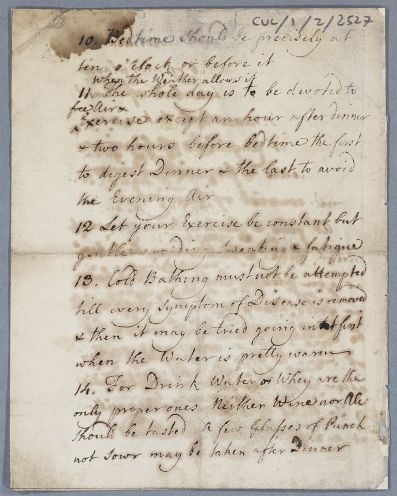 CUL/1/2/2527
10. Bedtime should be precisely at
ten o'Clock or before it
When the Weather allows it
11. The whole day is to be devoted to
free Air &
Exercise except an hour after dinner
& two hours before bedtime the first
to digest Dinner & the last to avoid
the Evening Air
12 Let your Exercise be constant but
gentle avoiding sweating & fatigue
13. Cold Bathing must not be attempted
till every Symptom of Disease is removed
& then it may be tried going in at first
when the Water is pretty warm
14. For Drink Water or Whey are the
only proper ones Neither Wine nor Ale
should be tasted A few Glasses of Punch
not Sowr may be taken after Dinner